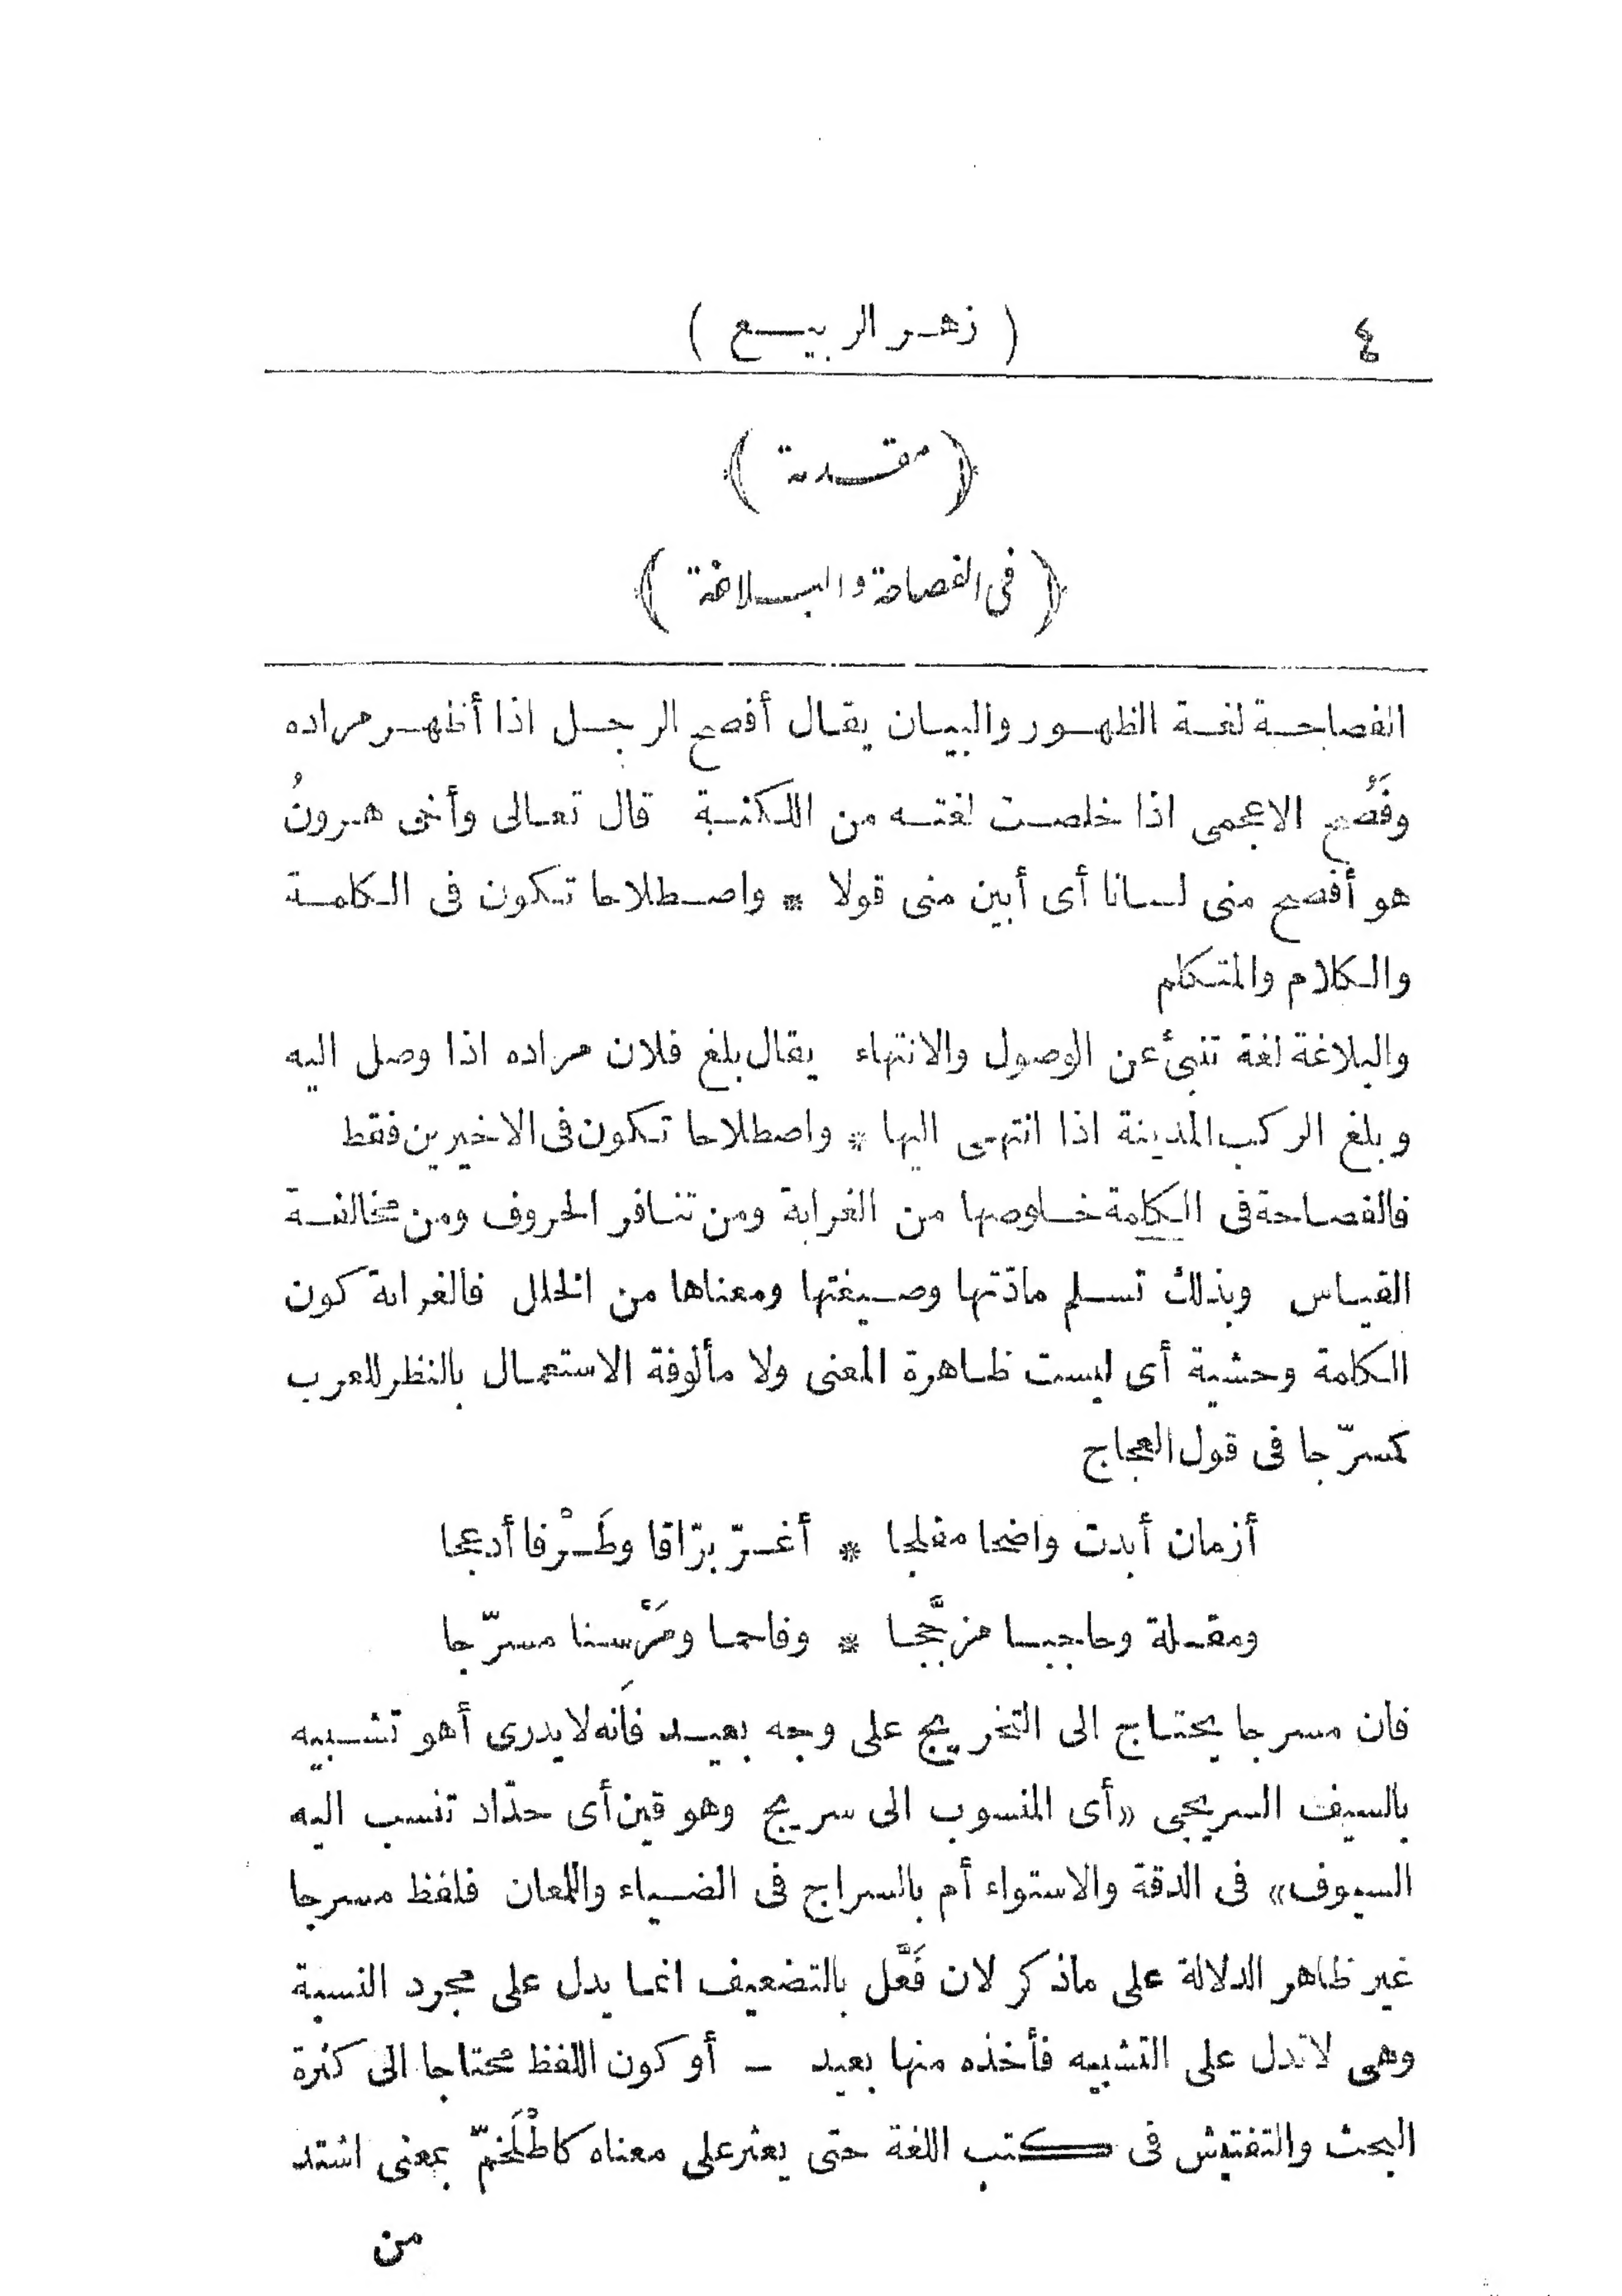 ٤
( زهر الربيع )
﴿ مقدمة ﴾
﴿ فى الفصاحة والبلاغة ﴾
الفصاحة لغة الظهور والبيان يقال أفصح الرجل اذا أظهر مراده
وفَصُح الاعجمى اذا خلصت لغته من اللكنة قال تعالى وأخى هرونُ
هو أفصح منى لسانا أى أبين منى قولا * واصطلاحا تكون فى الكلمة
والكلام والمتكلم
والبلاغة لغة تنبئ عن الوصول والانتهاء يقال بلغ فلان مراده اذا وصل اليه
وبلغ الركب المدينة اذا انتهى اليها * واصطلاحا تكون فى الاخيرين فقط
فالفصاحة فى الكلمة خلوصها من الغرابة ومن تنافر الحروف ومن مخالفة
القياس وبذلك تسلم مادّتها وصيغتها ومعناها من الخلل فالغرابة كون
الكلمة وحشية أى ليست ظاهرة المعنى ولا مألوفة الاستعمال بالنظر للعرب
كمسرّجا فى قول العجاج
أزمان أبدت واضحا مفلجا * أغرّ برّاقا وطَرْفا أدعجا
ومقلة وحاجبا مزجَّجا * وفاحما ومَرْسنا مسرّجا
فان مسرجا يحتاج الى التخريج على وجه بعيد فَانه لا يدرى أهو تشبيه
بالسيف السريجى «أى المنسوب الى سريج وهو قين أى حدّاد تنسب اليه
السيوف» فى الدقة والاستواء أم بالسراج فى الضياء واللمعان فلفظ مسرجا
غير ظاهر الدلالة على ماذكر لان فَعَّل بالتضعيف انما يدل على مجرد النسبة
وهى لاتدل على التشبيه فأخذه منها بعيد - أو كون اللفظ محتاجا الى كثرة
البحث والتفتيش فى كتب اللغة حتى يعثر على معناه كاطْلَخمّ بمعنى اشتد
من